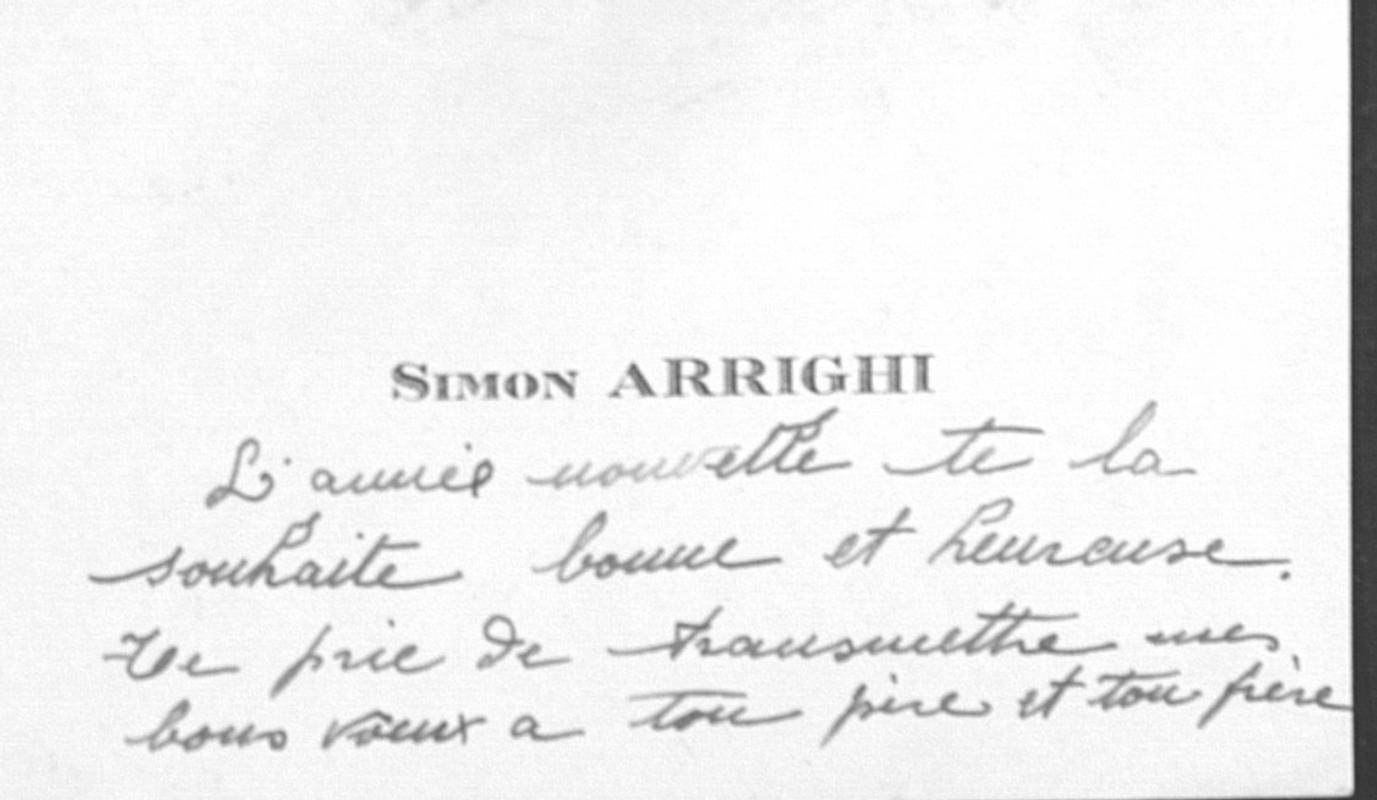 Simon ARRIGHI
L'année nouvelle te la
souhaite bonne et heureuse.
Te prie de transmettre mes
bons vœux a ton père et ton frère